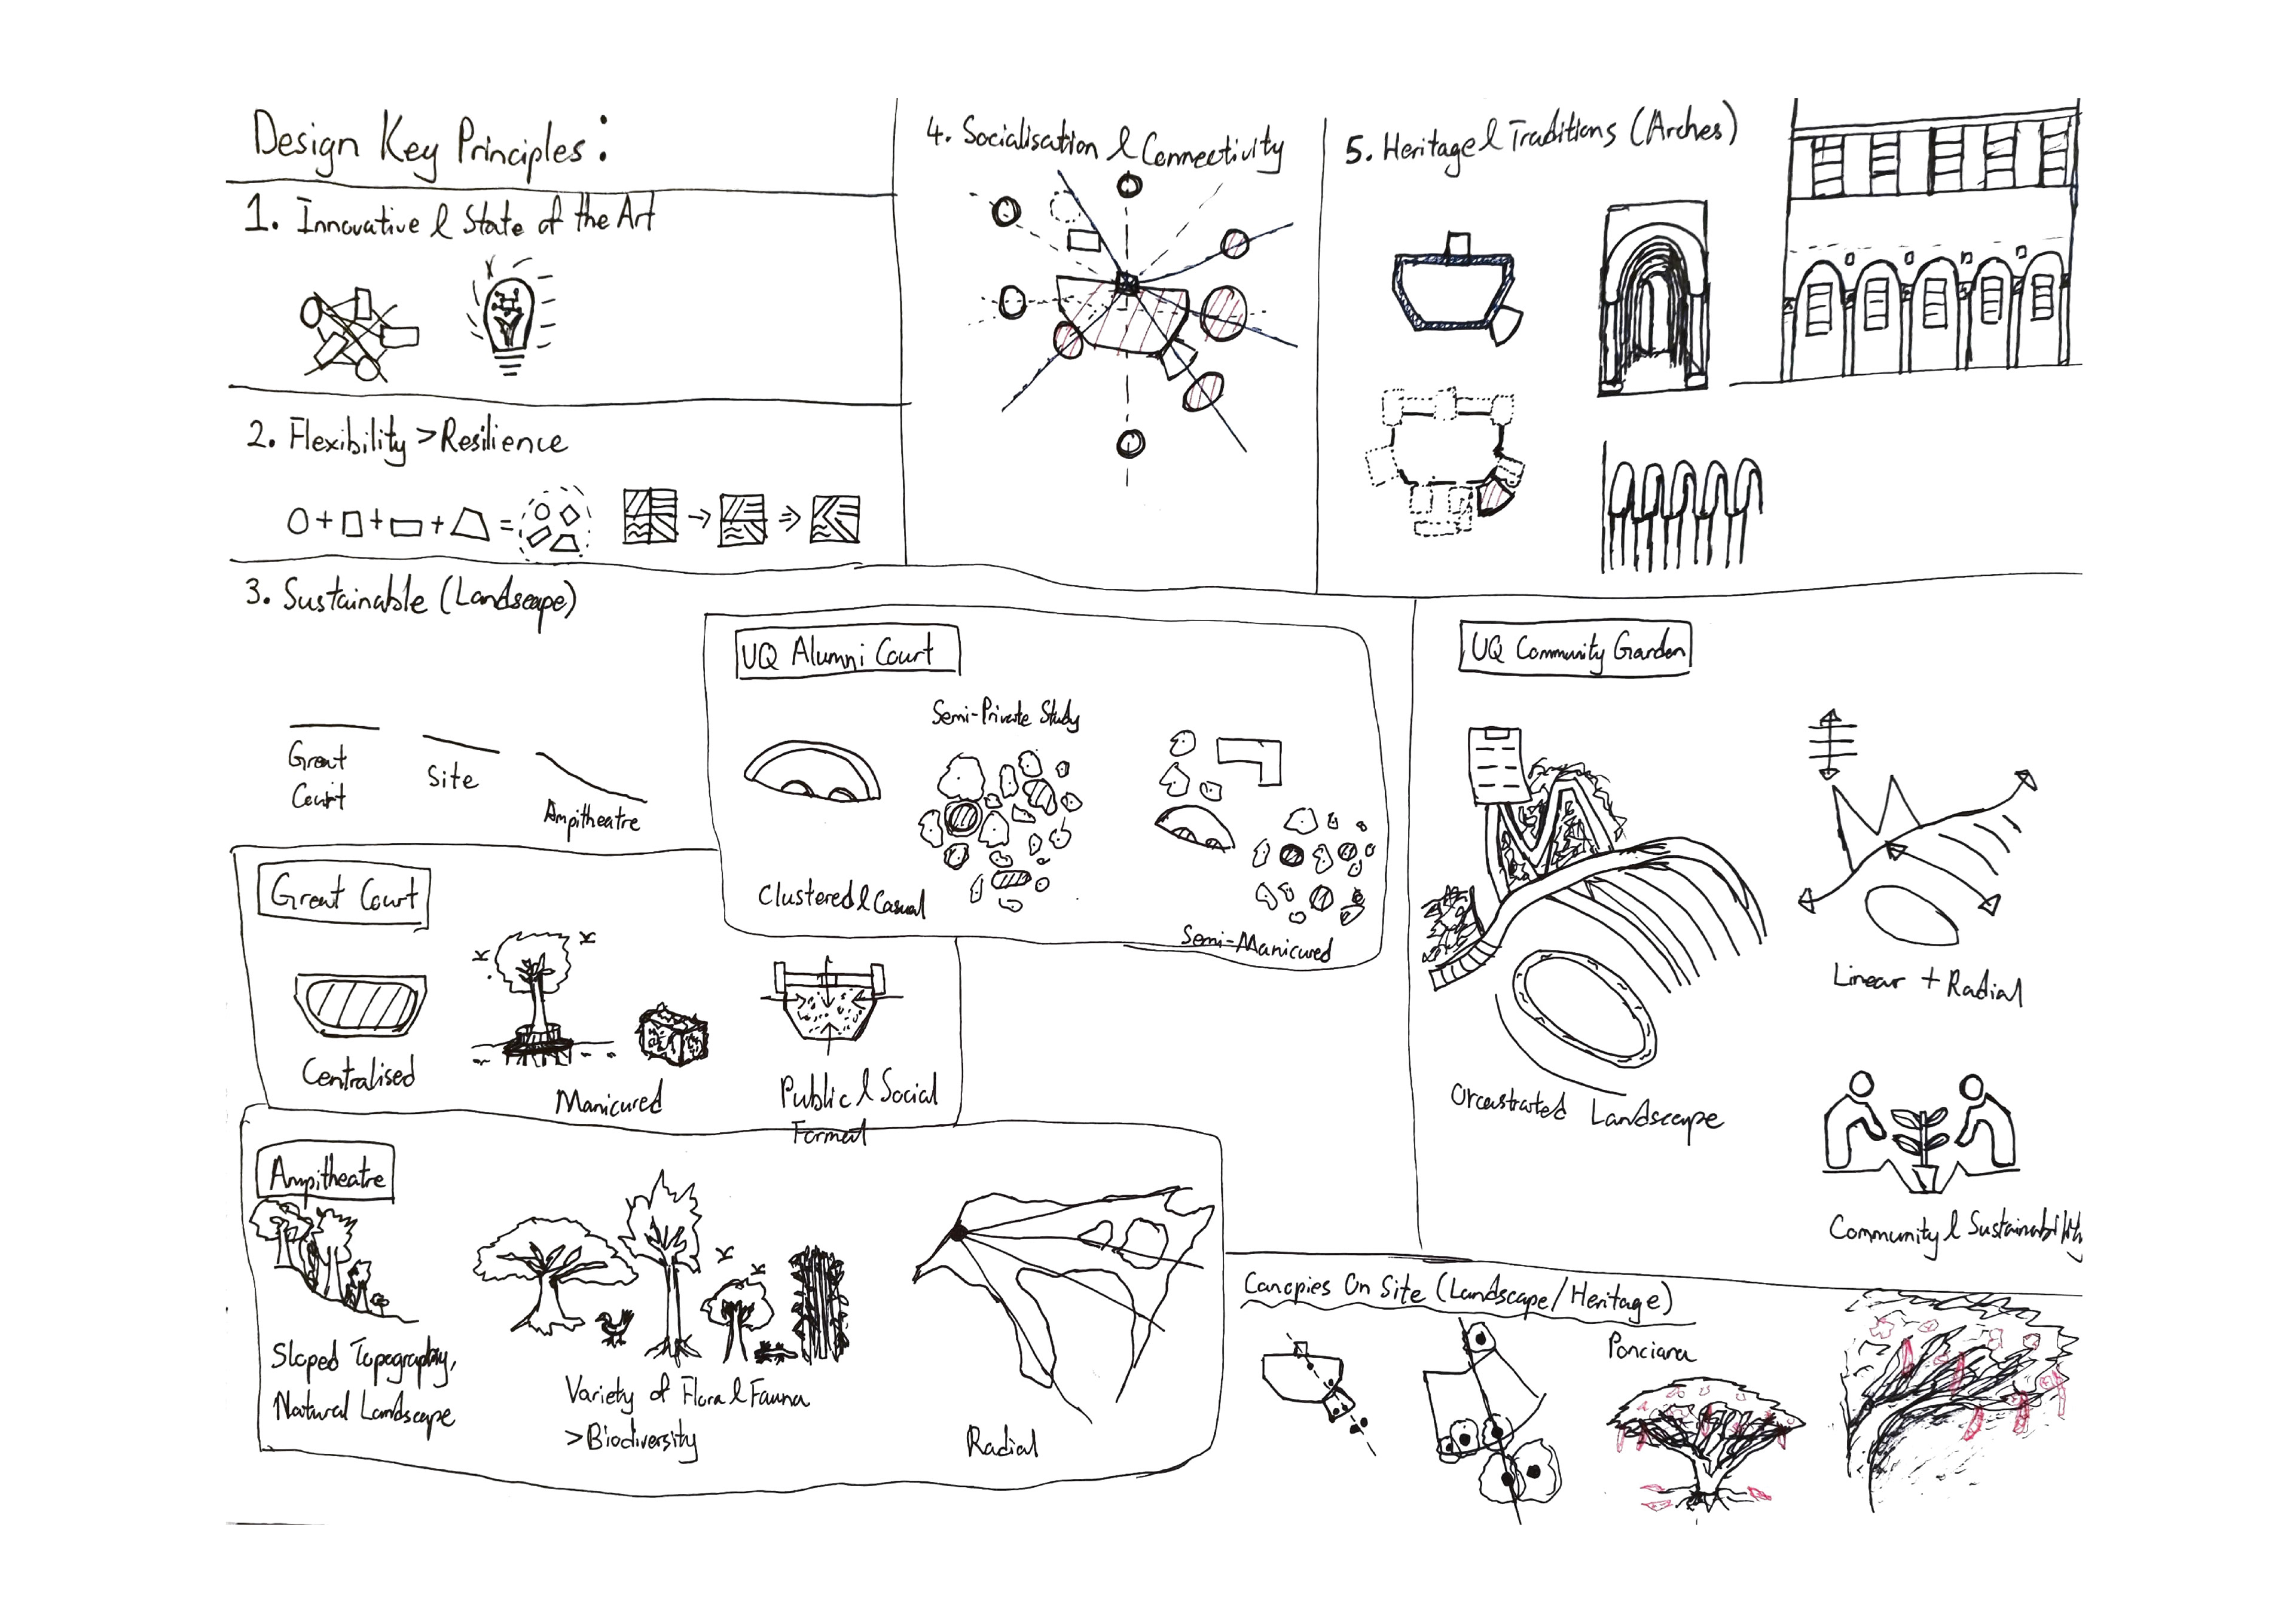 Design Key Principles:
1. Innovative & State of the Art
2. Flexibility > Resilience
O + □ + ▭ + ⏢ =
3. Sustainable (Landscape)
Great
Court
Site
Ampitheatre
4. Socialisation & Connectivity
5. Heritage & Traditions (Arches)
UQ Alumni Court
Semi-Private Study
Clustered & Casual
Semi-Manicured
Great Court
Centralised
Manicured
Public & Social
Formal
Ampitheatre
Sloped Topography,
Natural Landscape
Variety of Flora & Fauna
>Biodiversity
Radial
UQ Community Garden
Linear + Radial
Orcastrated Landscape
Community & Sustainability
Canopies On Site (Landscape/Heritage)
Ponciana